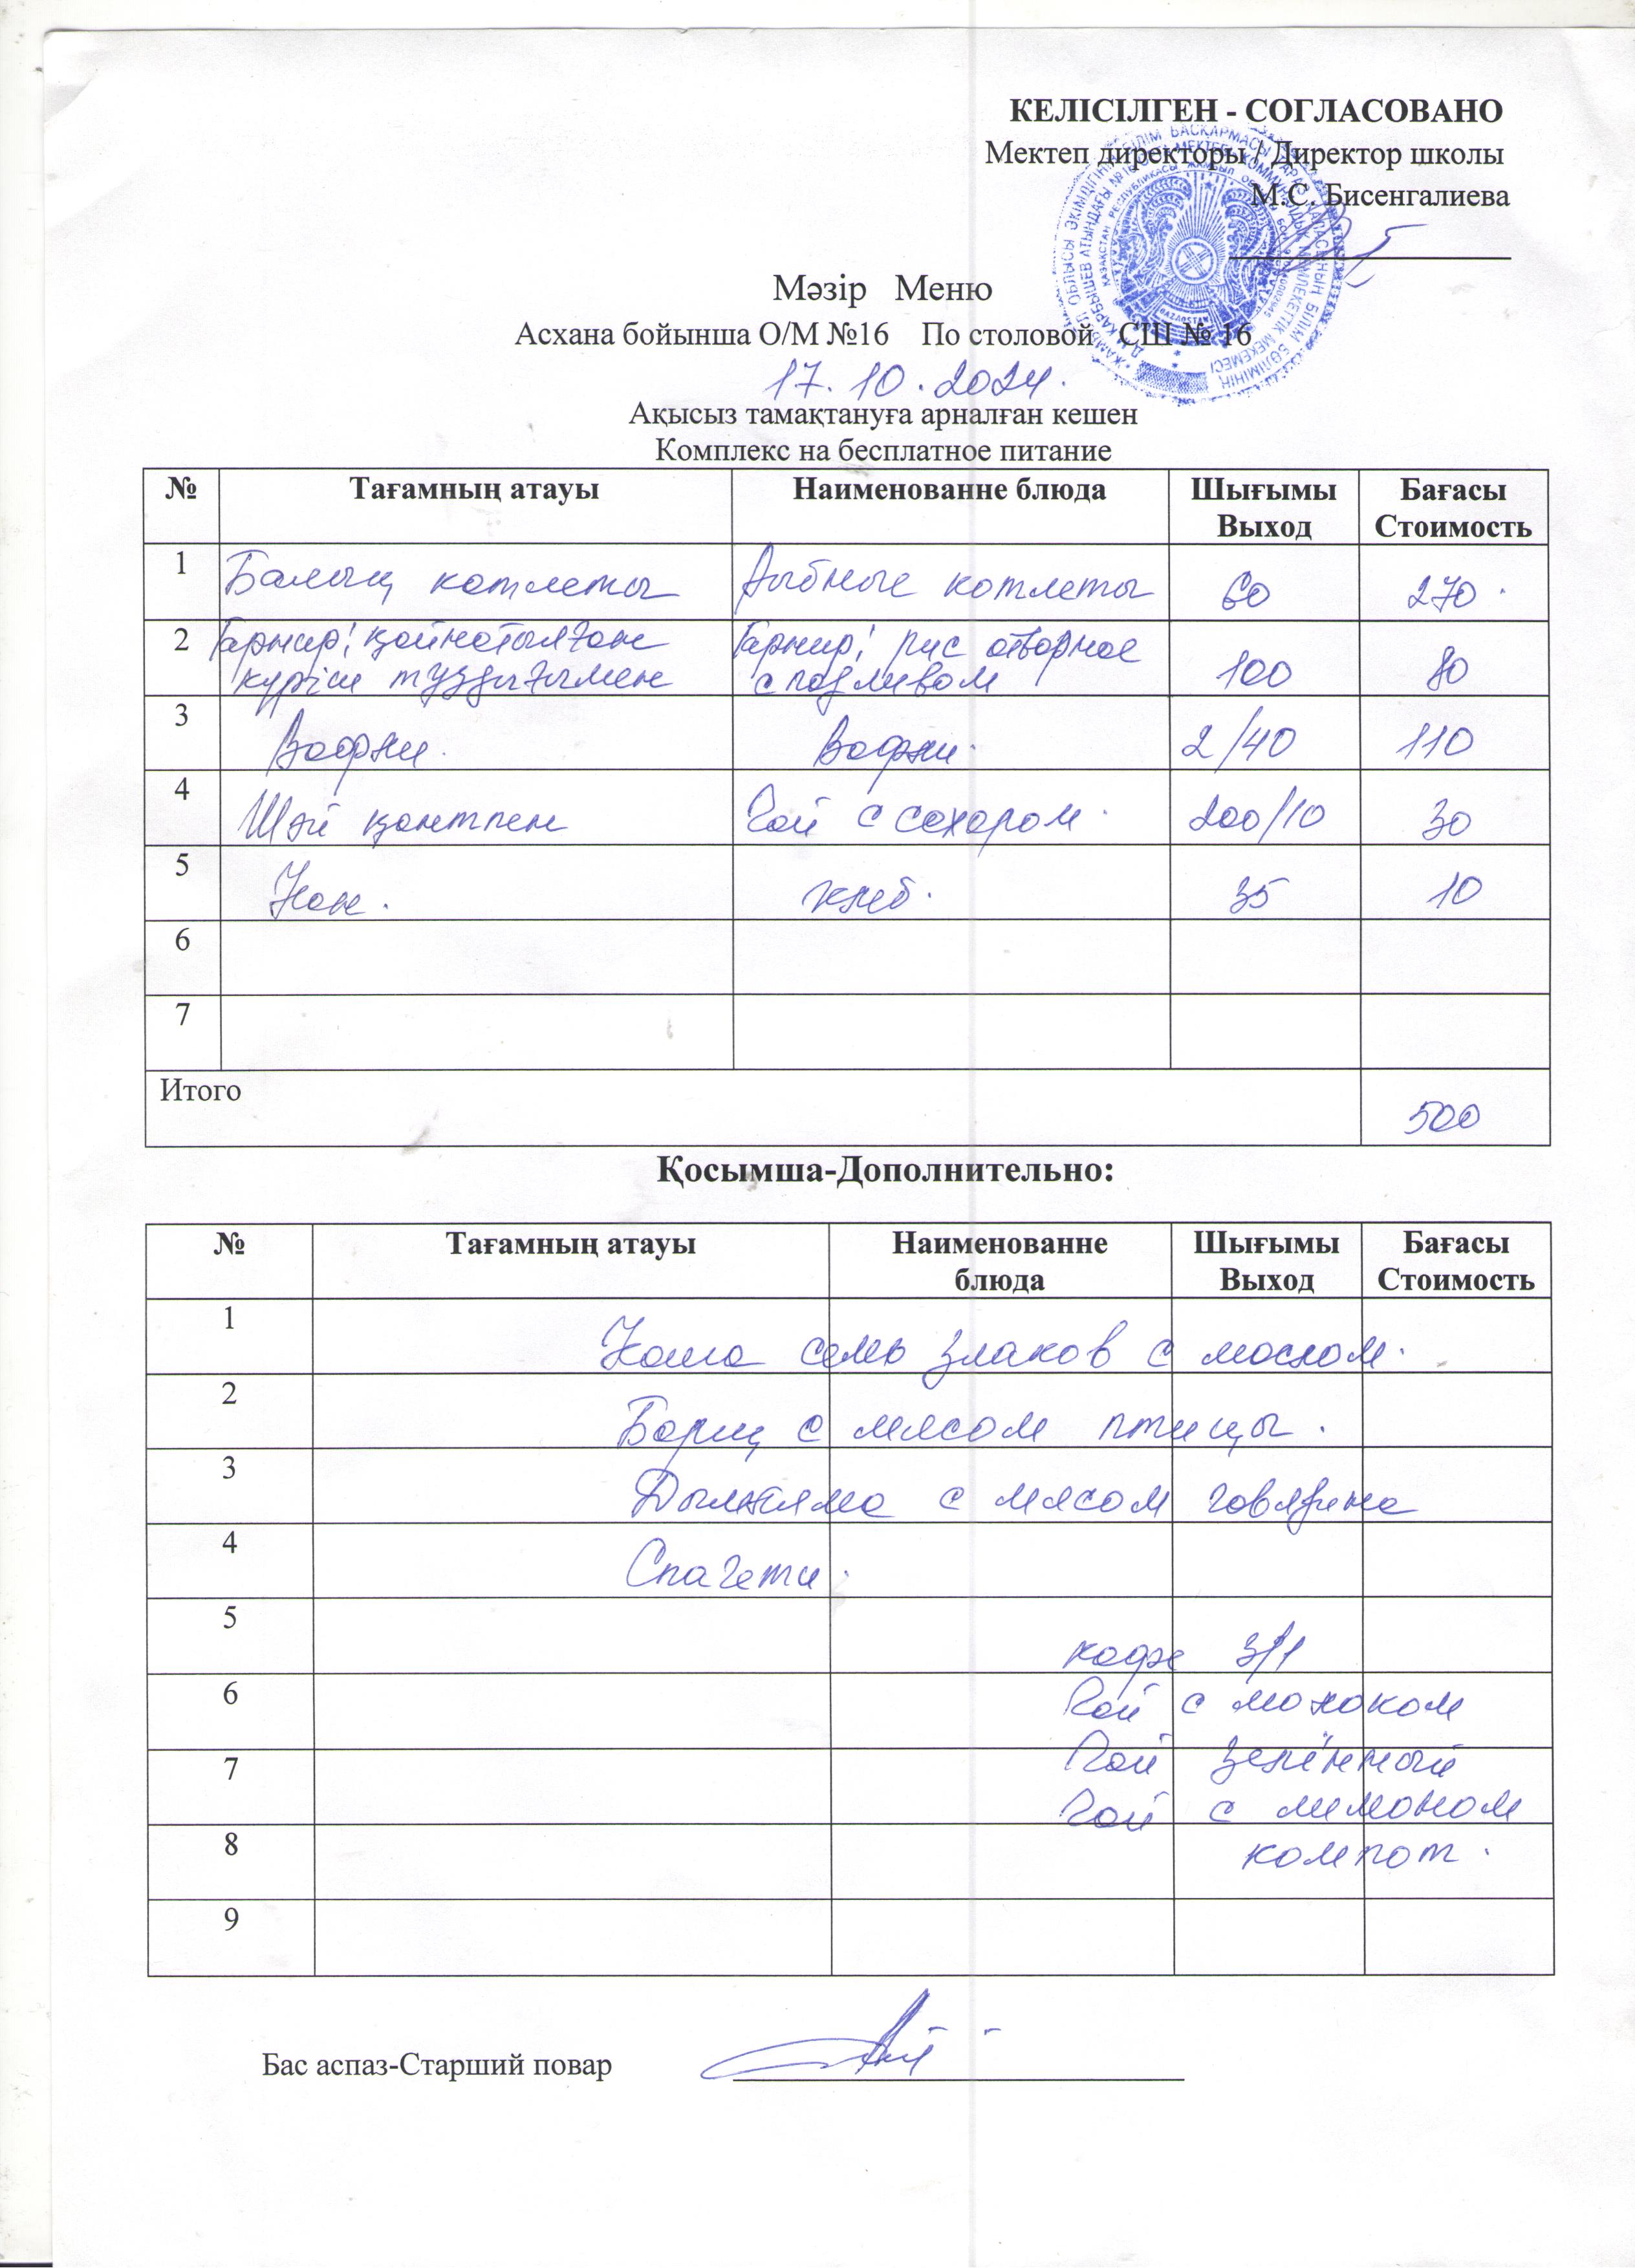 КЕЛІСІЛГЕН - СОГЛАСОВАНО
Мектеп директоры / Директор школы
М.С. Бисенгалиева
Мәзір Меню
Асхана бойынша О/М №16 По столовой СШ № 16
17.10.2024.
Ақысыз тамақтануға арналған кешен
Комплекс на бесплатное питание
№ Тағамның атауы Наименованне блюда Шығымы Выход Бағасы Стоимость
1 Балық котлеты Рыбные котлеты 60 270.
2 Гарнир: қайнатылған Гарнир: рис отворное 100 80
күріш тұздығымен с подливом
3 Вафли. Вафли. 2/40 110
4 Шәй қантпен Чай с сахаром. 200/10 30
5 Нан. хлеб. 35 10
6
7
Итого 500
Қосымша-Дополнительно:
№ Тағамның атауы Наименованне блюда Шығымы Выход Бағасы Стоимость
1 Каша семь злаков с маслом.
2 Борщ с мясом птицы.
3 Дымляма с мясом говядина
4 Спагети.
5 кофе 3/1
6 Чай с молоком
7 Чай зелённый
Чай с лимоном
8 компот.
9
Бас аспаз-Старший повар